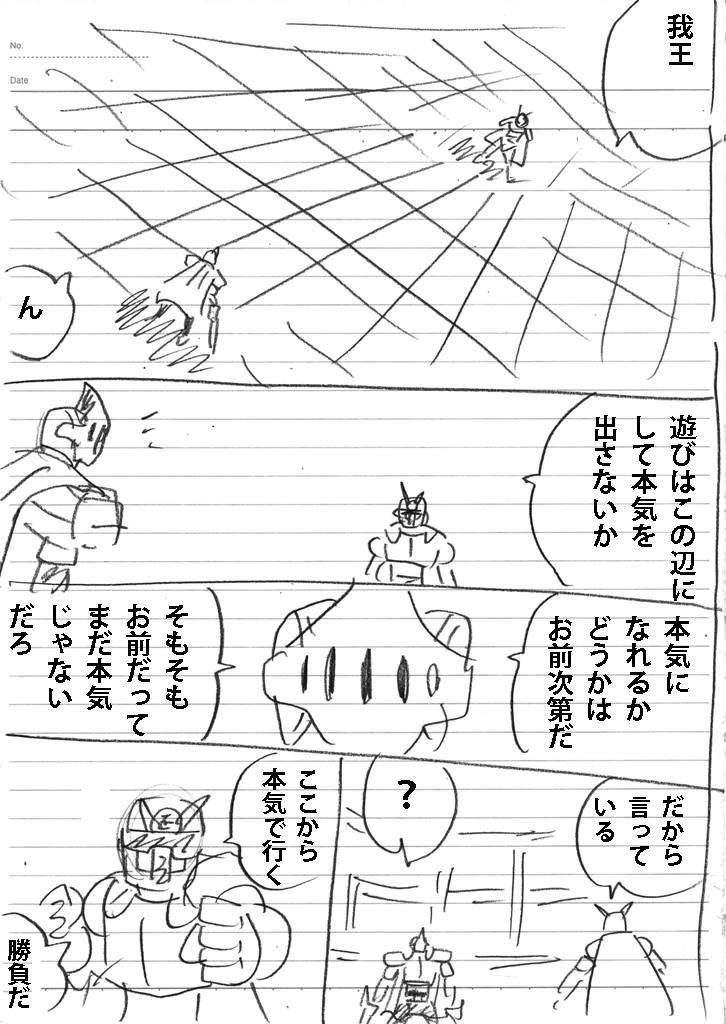 No:
Date
我王
ん
遊びはこの辺に
して本気を
出さないか
本気に
なれるか
どうかは
お前次第だ
そもそも
お前だって
まだ本気
じゃない
だろ
だから
言って
いる
？
ここから
本気で行く
勝負だ